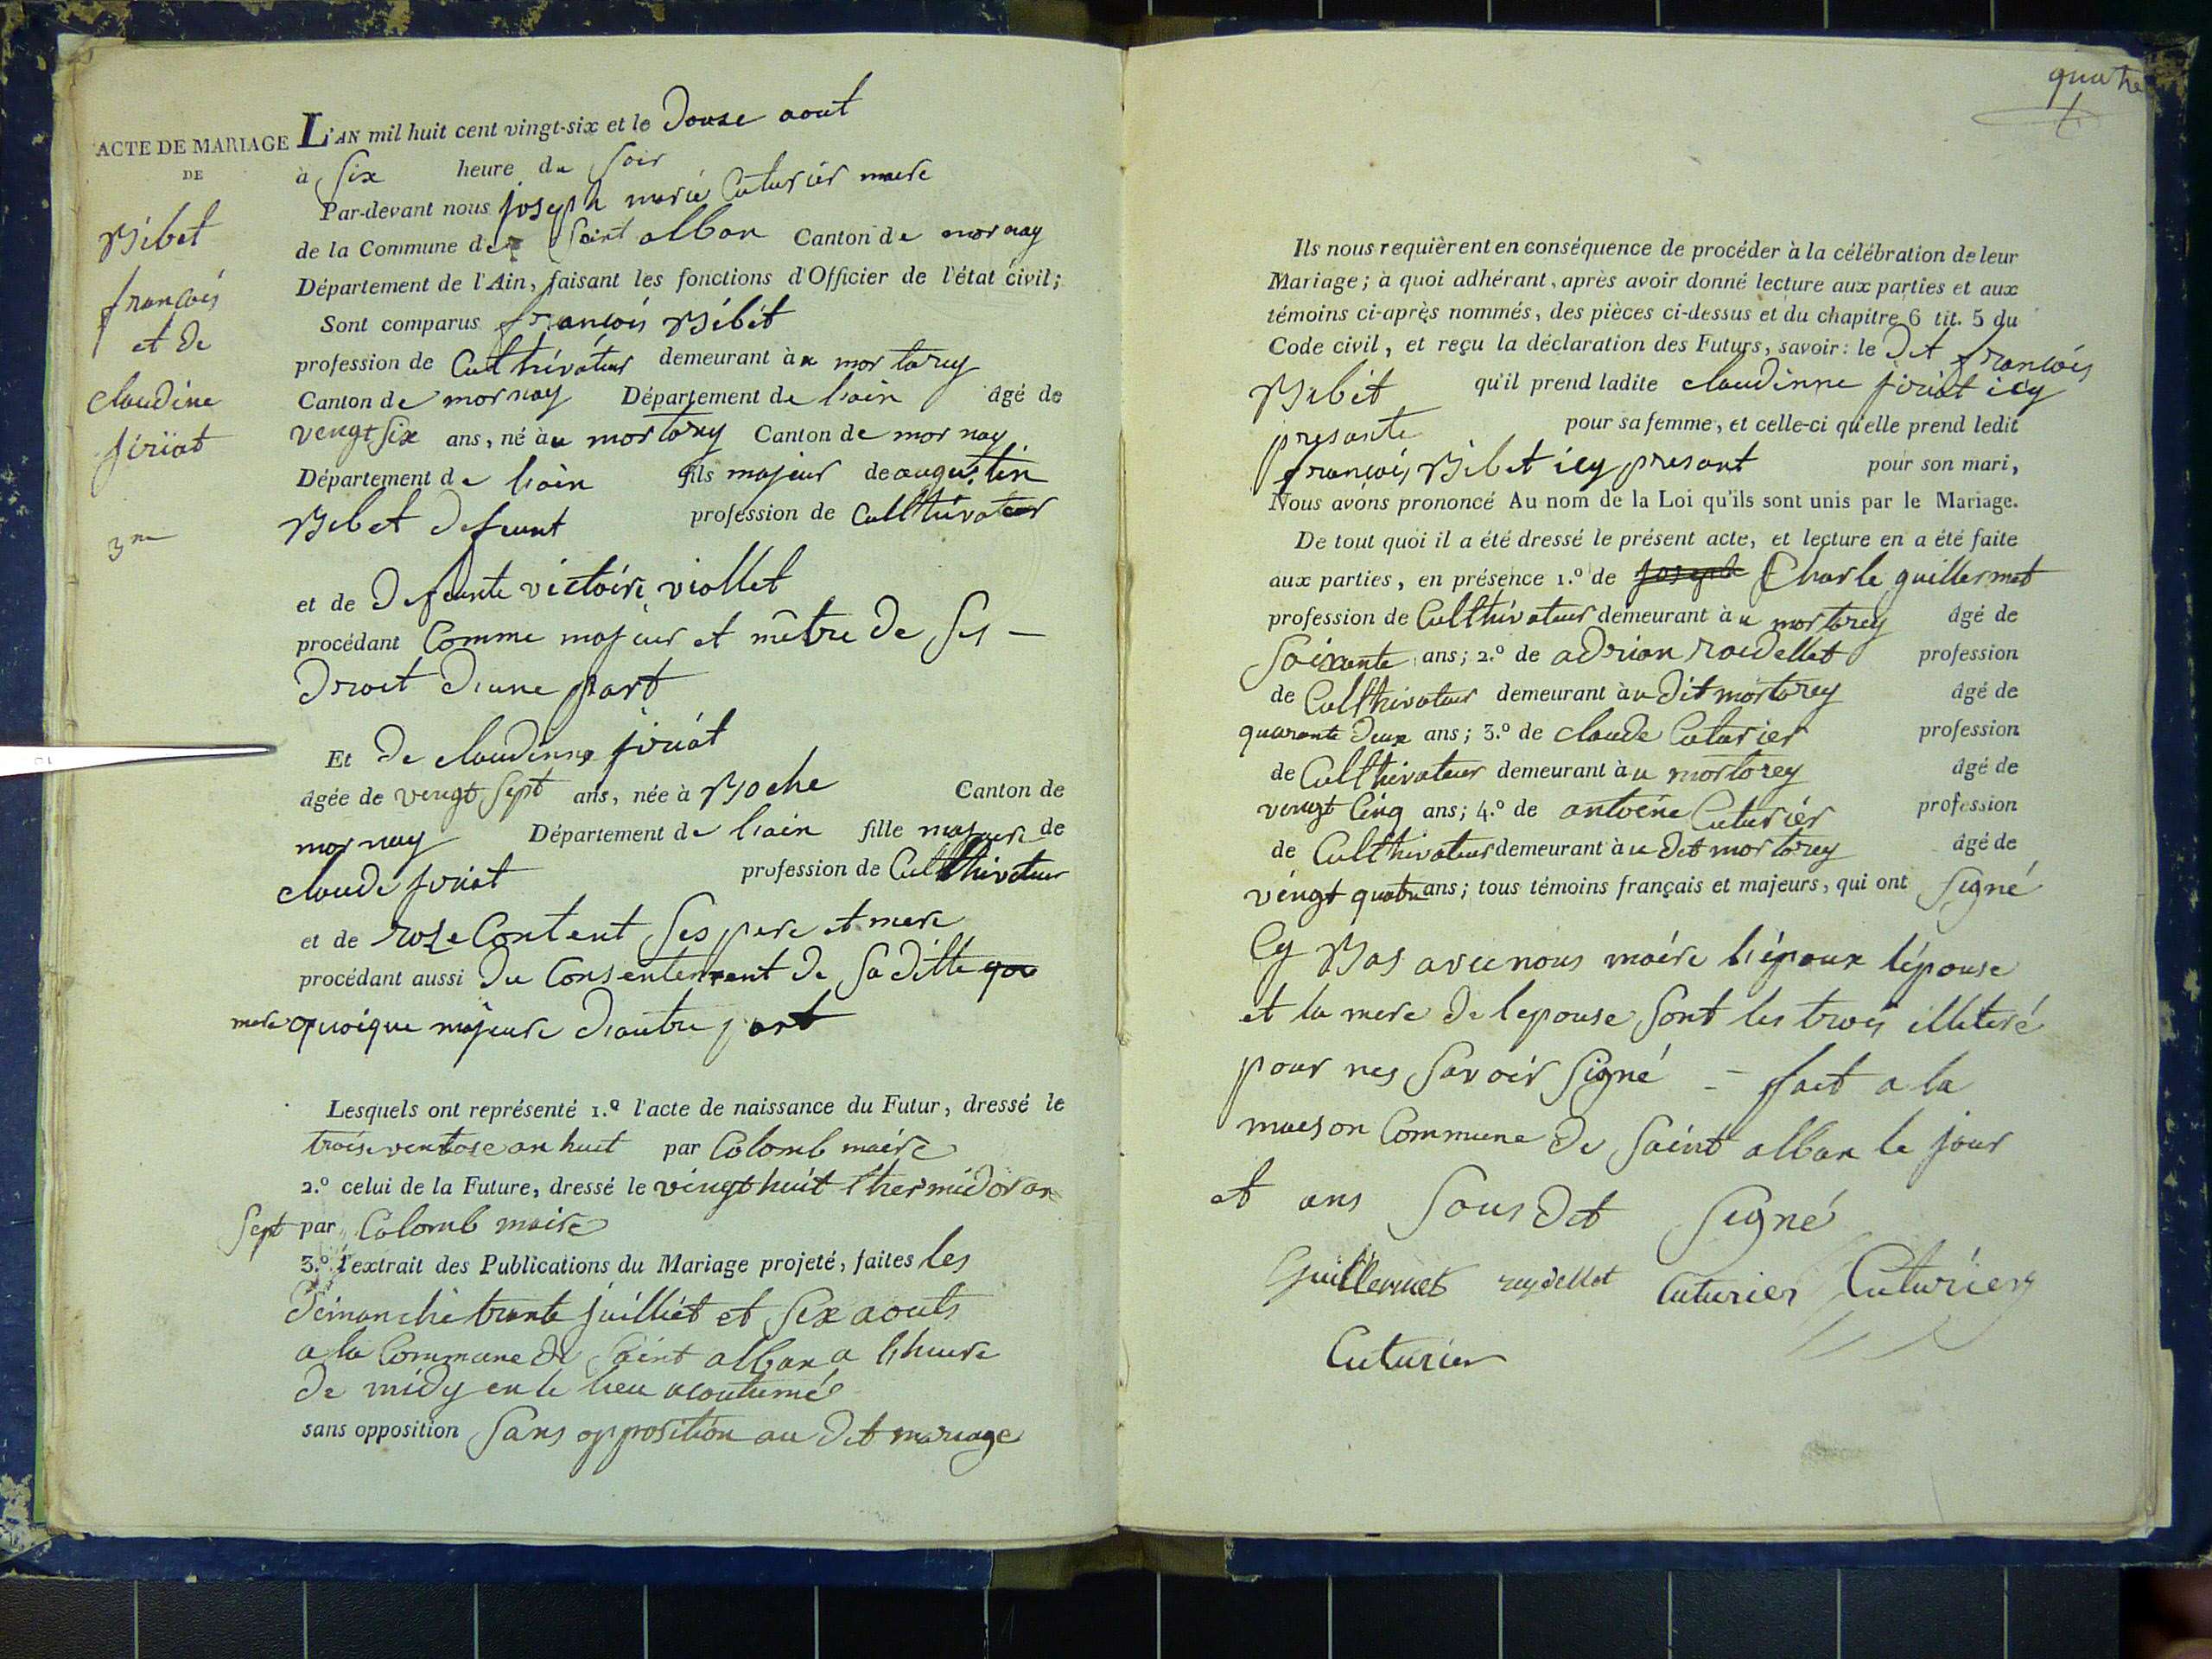 ACTE DE MARIAGE
DE
Bibet
francois
et de
claudine
juriat
3me
L'AN mil huit cent vingt-six et le Douse aout
à Six heure du Soir
Par-devant nous joseph marie Cuturier maire
de la Commune de Saint alban Canton de mornay
Département de l'Ain, faisant les fonctions d'Officier de l'état civil;
Sont comparus francois Bibet
profession de Culthivateur demeurant à u mortarey
Canton de mornay Département de lain âgé de
vengt Six ans, né à u mortarey Canton de mornay
Département de lain fils majeur de augustin
Bibet defeunt profession de Culthivateur
et de Defeunte victoire viollet
procédant Comme majeur et mêtre de Ses
Droit D'une part
Et De claudinne juriat
âgée de vengt Sept ans, née à Boche Canton de
mornay Département de lain fille majeure de
claude juriat profession de Culthivateur
et de roze Content Ses pere et mere
procédant aussi Du Consentement de Sa ditte que
mere quoique majeure D'autre part
Lesquels ont représenté 1.º l'acte de naissance du Futur, dressé le
trois ventose an huit par Colomb maire
2.º celui de la Future, dressé le vingt huit thermidor an
Sept par Colomb maire
3.º l'extrait des Publications du Mariage projeté, faites les
Dimanche trante juilliet et Six aouts
a la Commune de Saint alban a l'heure
De midy en le lieu acoutumé
sans opposition Sans opposition au Dit mariage
quatre
Ils nous requièrent en conséquence de procéder à la célébration de leur
Mariage; à quoi adhérant, après avoir donné lecture aux parties et aux
témoins ci-après nommés, des pièces ci-dessus et du chapitre 6 tit. 5 du
Code civil, et reçu la déclaration des Futurs, savoir: le Dit francois
Bibet qu'il prend ladite claudinne juriat icy
presante pour sa femme, et celle-ci qu'elle prend ledit
francois Bibet icy presant pour son mari,
Nous avons prononcé Au nom de la Loi qu'ils sont unis par le Mariage.
De tout quoi il a été dressé le présent acte, et lecture en a été faite
aux parties, en présence 1.º de joseph Charle guillermet
profession de Culthivateur demeurant à u mortarey âgé de
Soixante ans; 2.º de adrian roidellet profession
de Culthivateur demeurant à u Dit mortarey âgé de
quarante Deux ans; 3.º de claude Cuturier profession
de Culthivateur demeurant à u mortarey âgé de
vengt Cinq ans; 4.º de antoine Cuturier profession
de Culthivateur demeurant à u Dit mortarey âgé de
vengt quatre ans; tous témoins français et majeurs, qui ont Signé
Cy Bas avec nous maire l'époux l'épouse
et la mere de lepouse Sont les trois illiteré
pour nes Savoir Signé - fait a la
maison Commune de Saint alban le jour
et ans Sous Dit Signé
Guillermet reydellet Cuturier Cuturier
Cuturier